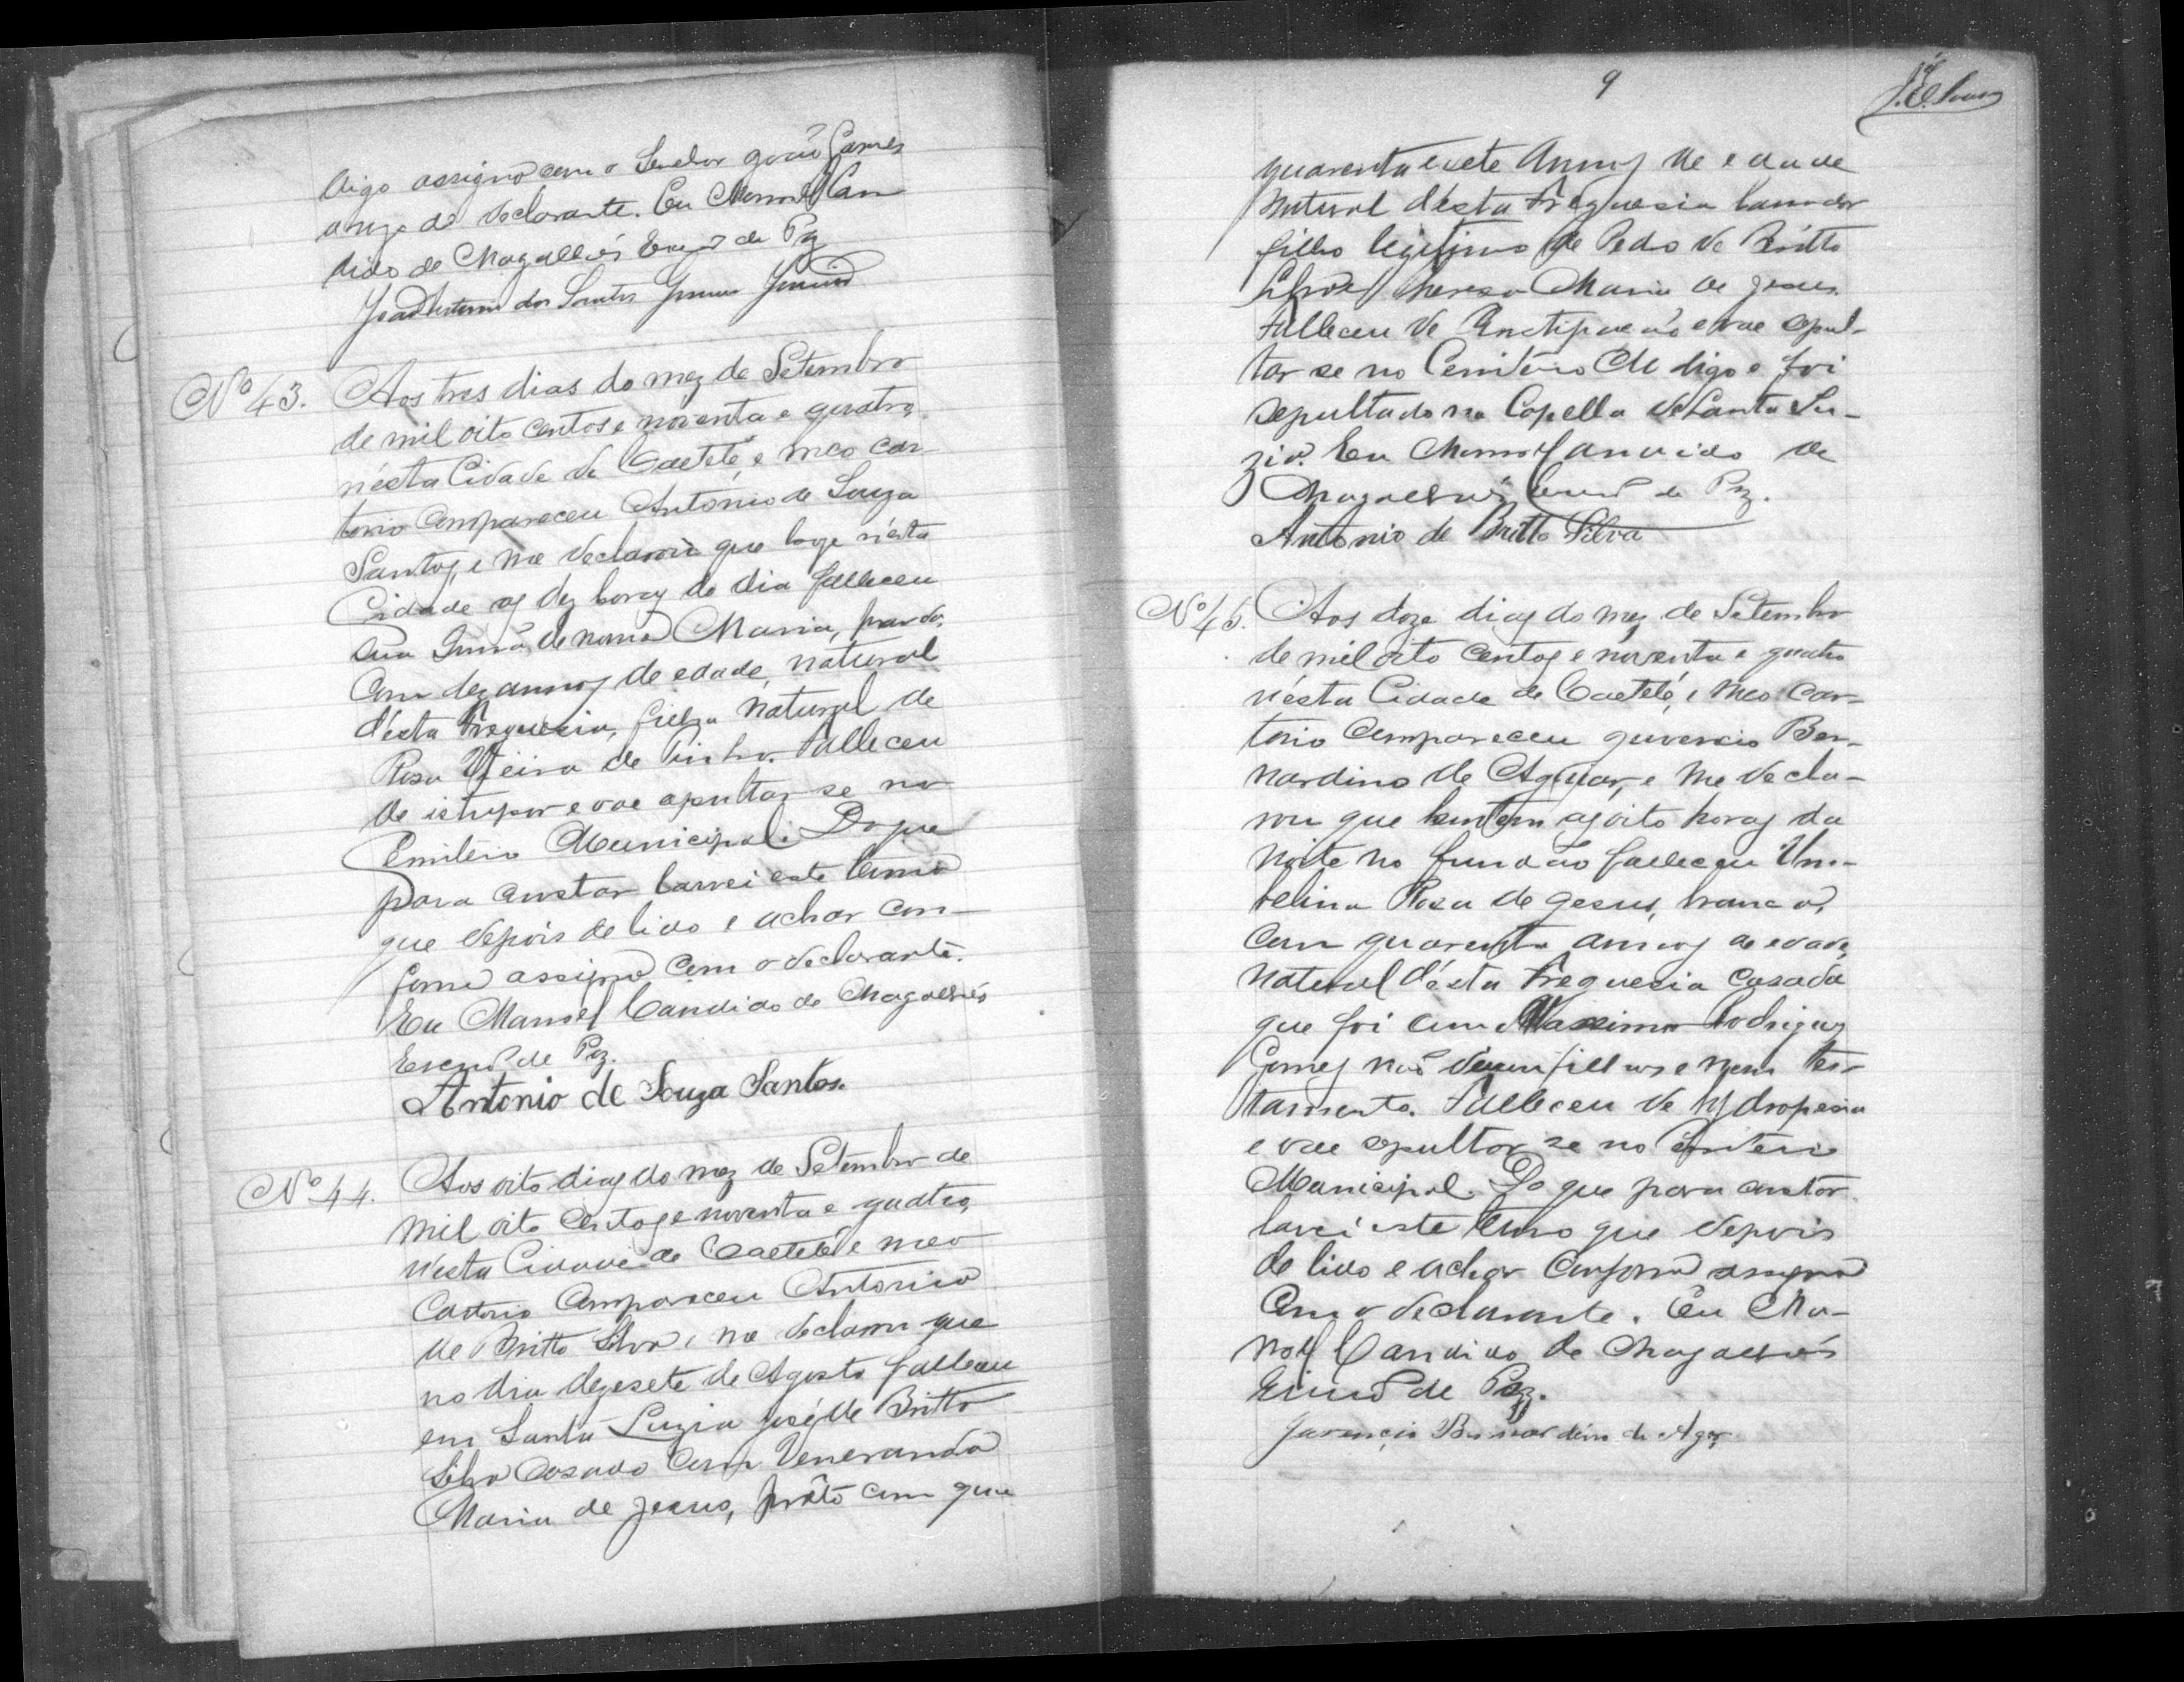 digo assigno com o Senhor João Gomes
a rogo do declarante. Eu Manoel Can
dido de Magalhães Escrm de Paz
João Antonio dos Santos Gomes Junior
No 43. Aos tres dias do mez de Setembro
de mil oito centos e noventa e quatro,
n'ésta Cidade de Caeteté, e meo car
torio Compareceu Antonio de Souza
Santos, e me declarou que hoje n'ésta
Cidade as dez horas do dia falleceu
sua Irmã de nome Maria, parda,
com dez annos de edade, natural
d'ésta Freguesia, filha natural de
Rosa Vieira de Pinho. Falleceu
de istupor e vae cepultar-se no
Cemiterio Municipal. Do que
para constar lavrei este termo
que depois de lido e achar con-
forme assigno com o declarante.
Eu Manoel Candido de Magalhães
Escrm de Paz.
Antonio de Souza Santos.
No 44. Aos oito dias do mez de Setembro de
mil oito centos e noventa e quatro,
n'esta Cidade de Caeteté e meo
Cartorio Compareceu Antonio
de Britto Silva, e me declarou que
no dia dezesete de Agosto falleceu
em Santa Luzia José de Britto
Silva Casado Com Veneranda
Maria de Jesus, prêto com qua
9
quarenta e sete Annos de edade
Natural d'ésta Freguesia lavrador
filho legitimo de Pedo de Britto
Silva e Thereza Maria de Jesus.
Falleceu de Constipação e vae cepul-
tar se no Cemiterio M digo e foi
sepultado na Capella de Santa Lu-
zia. Eu Manoel Candido de
Magalhães Escrm de Paz.
Antonio de Britto Silva
No 45. Aos doze dias do mez de Setembro
de mil oito centos e noventa e quatro
n'ésta Cidade de Caeteté, e meo Car-
torio Compareceu Juvencio Ber-
nardino de Aguiar, e me decla-
rou que hontem as oito horas da
Noite no fundão falleceu Um-
belina Rosa de Jesus, branca,
Com quarenta annos de edade,
Natural d'ésta Freguesia Casada
que foi com Maximo Rodrigues
Gomes não deixou filhos e nem tes-
tamento. Falleceu de hydropesia
e vae cepultar se no Cemiterio
Municipal. Do que para constar
lavrei este termo que depois
de lido e achar Conforme assigno
Com o declarante. Eu Ma-
noel Candido de Magalhães
Escrm de Paz.
Juvencio Bernardino de Agar